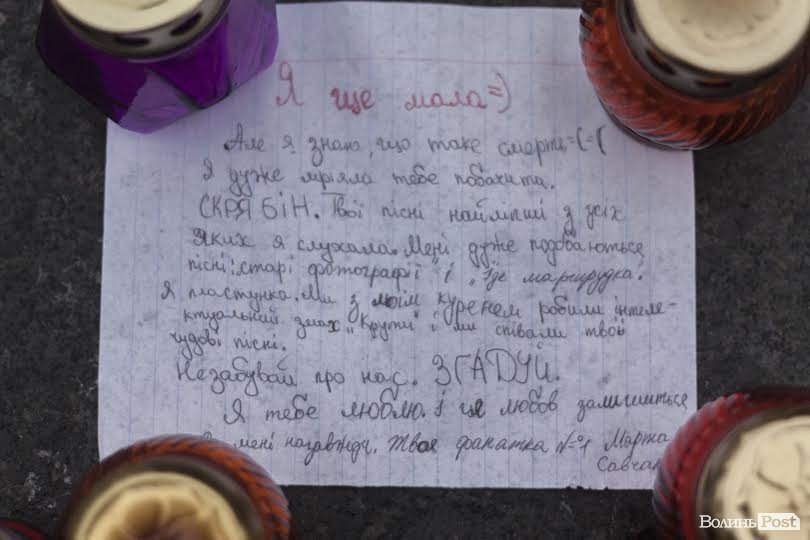 Я ще мала=)
Але я знаю, що таке смерть =(=(
Я дуже мріяла тебе побачити.
СКРЯБІН. Твої пісні найліпші з усіх
яких я слухала. Мені дуже подобаються
пісні: „старі фотографії" і „їде маршрутка."
Я пластунка. Ми з моїм куренем робили інтеле-
ктуальний змаг „Крути" і ми співали твої
чудові пісні.
Незабувай про нас. ЗГАДУЙ.
Я тебе люблю. І ця любов залишиться
мені назавжди. Твоя фанатка №1 Марта
Савчак
Волинь Post